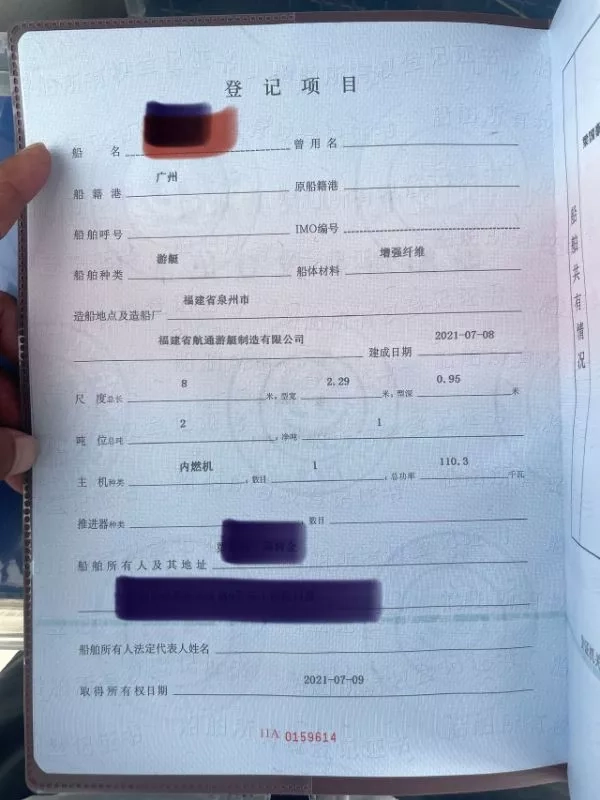 登记项目
船名 曾用名
船籍港 广州 原船籍港
船舶呼号 IMO编号
船舶种类 游艇 船体材料 增强纤维
造船地点及造船厂 福建省泉州市
福建省航通游艇制造有限公司 建成日期 2021-07-08
尺度总长 8 米,型宽 2.29 米,型深 0.95 米
吨位总吨 2 ,净吨 1
主机种类 内燃机 ,数目 1 总功率 110.3 千瓦
推进器种类 ,数目
船舶所有人及其地址
船舶所有人法定代表人姓名
取得所有权日期 2021-07-09
IIA 0159614
船舶共有情况